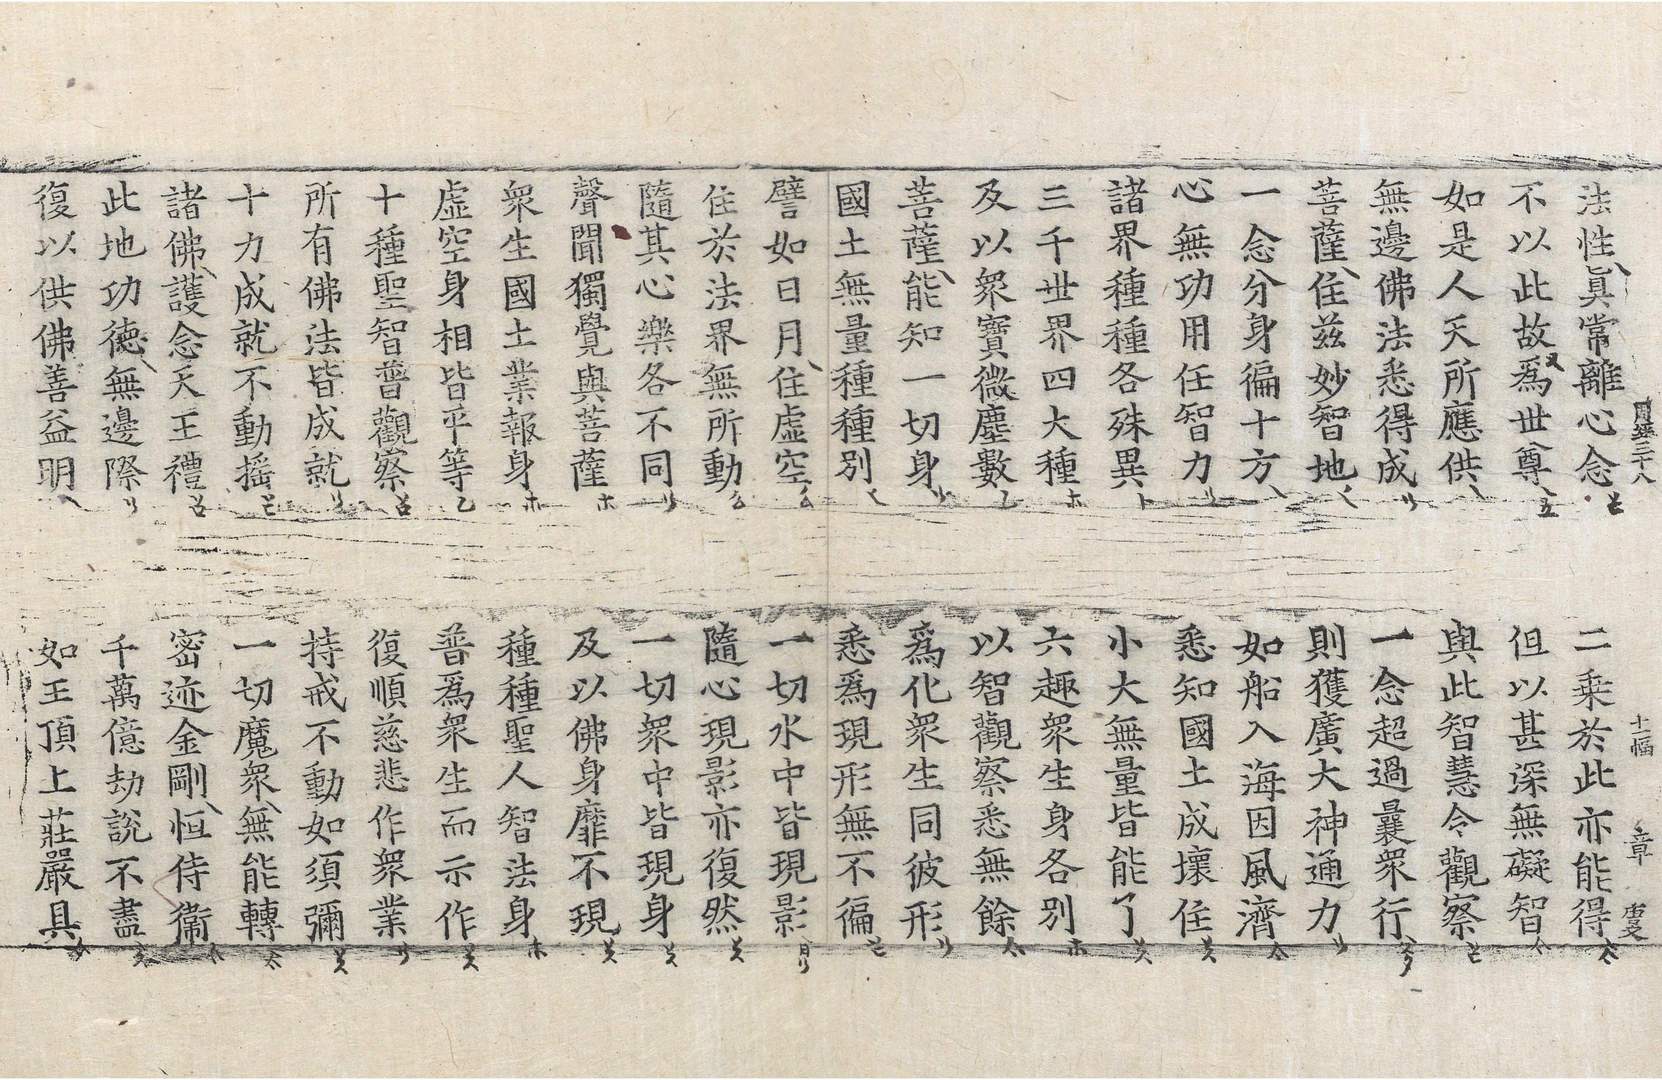 周經三十八
法性眞常離心念　二乘於此亦能得
不以此故爲世尊　但以甚深無礙智
如是人天所應供　與此智慧令觀察
無邊佛法悉得成　一念超過曩衆行
菩薩住兹妙智地　則獲廣大神通力
一念分身徧十方　如船入海因風濟
心無功用任智力　悉知國土成壞住
諸界種種各殊異　小大無量皆能了
三千世界四大種　六趣衆生身各別
及以衆寶微塵數　以智觀察悉無餘
菩薩能知一切身　爲化衆生同彼形
國土無量種種別　悉爲現形無不徧
譬如日月住虛空　一切水中皆現影
住於法界無所動　隨心現影亦復然
隨其心樂各不同　一切衆中皆現身
聲聞獨覺與菩薩　及以佛身靡不現
衆生國土業報身　種種聖人智法身
虛空身相皆平等　普爲衆生而示作
十種聖智普觀察　復順慈悲作衆業
所有佛法皆成就　持戒不動如須彌
十力成就不動搖　一切魔衆無能轉
諸佛護念天王禮　密迹金剛恒侍衞
此地功德無邊際　千萬億劫說不盡
復以供佛善益明　如王頂上莊嚴具